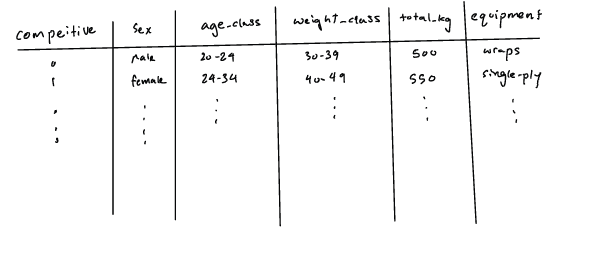 compeitive sex age_class weight_class total_kg equipment
0 male 20-29 30-39 500 wraps
1 female 24-34 40-49 550 single-ply